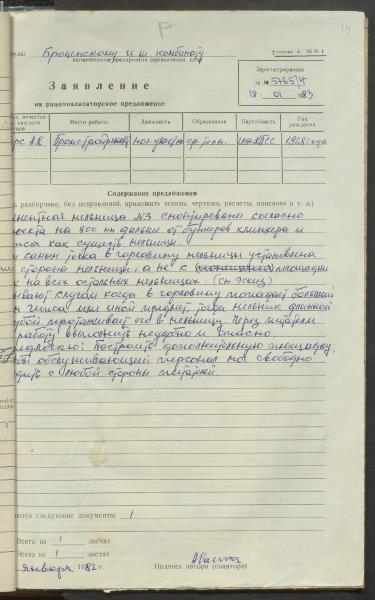 Р
телю Броценскому ц.ш. комбинату
наименование предприятия (организации, ...)
Типовая ф. № Р-1
Зарегистрировано
за № 5765/4
18 01 1983
Заявление
на рационализаторское предложение
отчество каждого автора
Место работы
Должность
Образование
Партийность
Год рождения
нач. участка
ср. техн.
чл. КПСС
1928 года
Содержание предложения
разборчиво, без исправлений, приложить эскизы, чертежи, расчеты, описания и т. д.)
цементная мельница №3 смонтирована согласно
проекта на 800 мм дальше от бункеров клинкера и
гипса как сушист. мельницы.
течка в горловину мельницы установлена
стороны мельницы, а не к площадки
как на всех остальных мельницах. (см. Эскиз)
бывают случаи когда в горловину попадает большой
гипса или иной предмет, тогда мельник длинной
трубой проталкивает его в мельницу. Через питатели
работу выполнить неудобно и опасно.
Предлагаю: Построить дополнительную площадку,
чтобы обслуживающий персонал мог свободно
с любой стороны питателя.
следующие документы: 1
Всего на 1 листах
Эскиз на 1 листах
января 1982 г.
Подпись автора (соавтора)